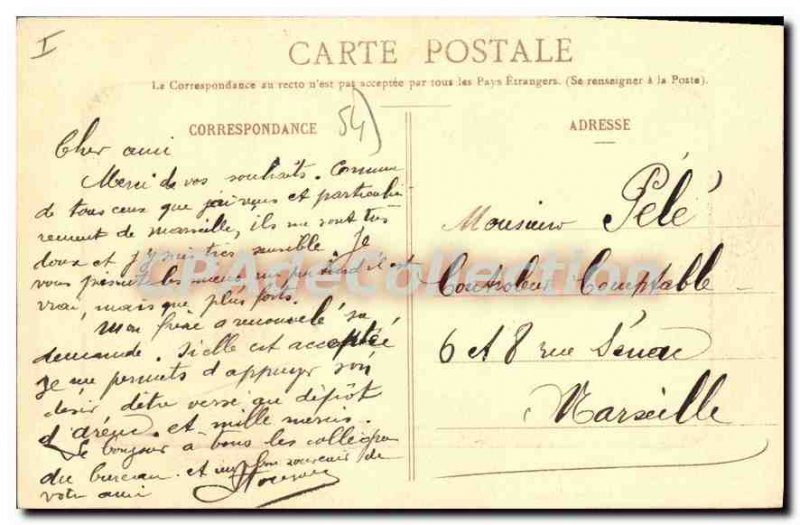 I
CARTE POSTALE
La Correspondance au recto n'est pas acceptée par tous les Pays Étrangers. (Se renseigner à la Poste).
CORRESPONDANCE
54)
Cher ami
Merci de vos souhaits. Comme
de tous ceux que j'ai reçus et particuliè
rement de marseille, ils me sont très
doux et j'y suis très sensible. Je
vous les miens un peu tard il est
vrai, mais que plus forts.
Mon frère a renouvelé sa
demande. Si elle est acceptée
je me permets d'appuyer son
désir d'être versé au dépôt
d'arenc. et mille mercis.
Le bonjour a tous les collègues
du bureau. et un bon souvenir de
votre ami
ADRESSE
Monsieur Pélé
Controleur Comptable
6 et 8 rue Sénac
Marseille
CPAdeCollection